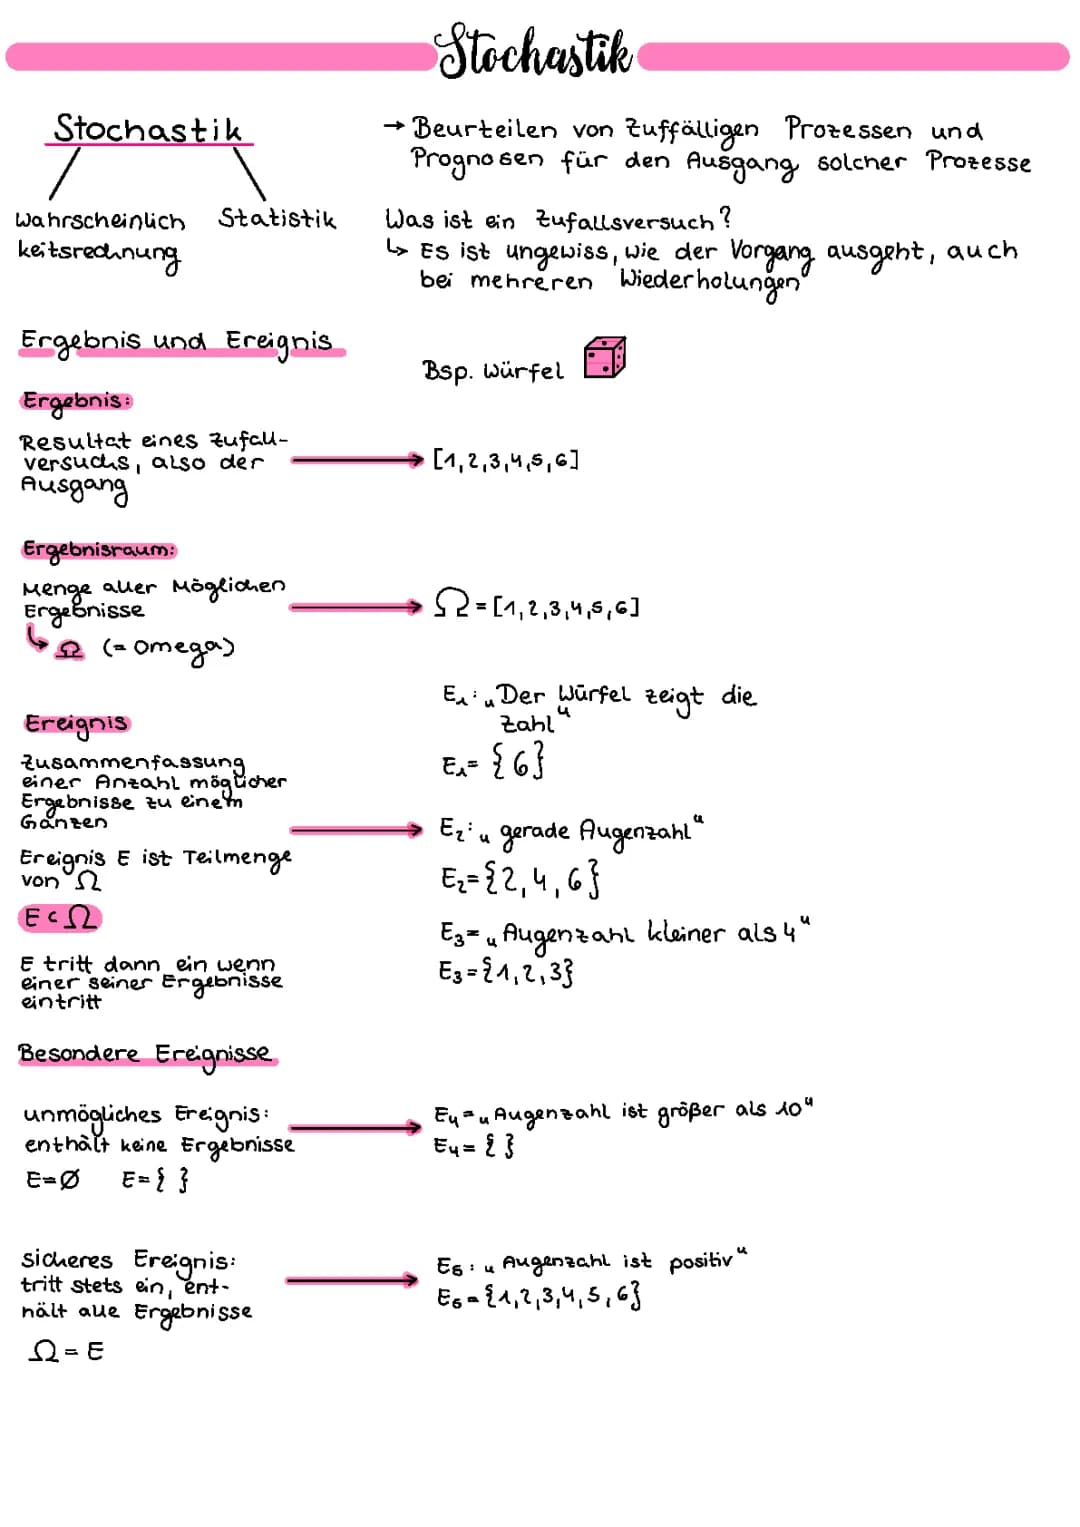 Stochastik
Stochastik
Wahrscheinlich
keitsrechnung
Statistik
→ Beurteilen von Zuffälligen Prozessen und
Prognosen für den Ausgang solcher Prozesse
Was ist ein Zufallsversuch?
↳ Es ist ungewiss, wie der Vorgang ausgeht, auch
bei mehreren Wiederholungen
Ergebnis und Ereignis
Bsp. Würfel
Ergebnis:
Resultat eines Zufall-
versuchs, also der
Ausgang
[1,2,3,4,5,6]
Ergebnisraum:
Menge aller Möglichen
Ergebnisse
↳ Ω (= Omega)
Ω = [1,2,3,4,5,6]
Ereignis
Zusammenfassung
einer Anzahl möglicher
Ergebnisse zu einem
Ganzen
Ereignis E ist Teilmenge
von Ω
E ⊂ Ω
E tritt dann ein wenn
einer seiner Ergebnisse
eintritt
E₁: „Der Würfel zeigt die
Zahl“
E₁= {6}
E₂: „gerade Augenzahl“
E₂={2,4,6}
E₃= „Augenzahl kleiner als 4“
E₃={1,2,3}
Besondere Ereignisse
unmögliches Ereignis:
enthält keine Ergebnisse
E=Ø E={ }
E₄= „Augenzahl ist größer als 10“
E₄= { }
sicheres Ereignis:
tritt stets ein, ent-
hält alle Ergebnisse
Ω = E
E₅: „Augenzahl ist positiv“
E₅={1,2,3,4,5,6}